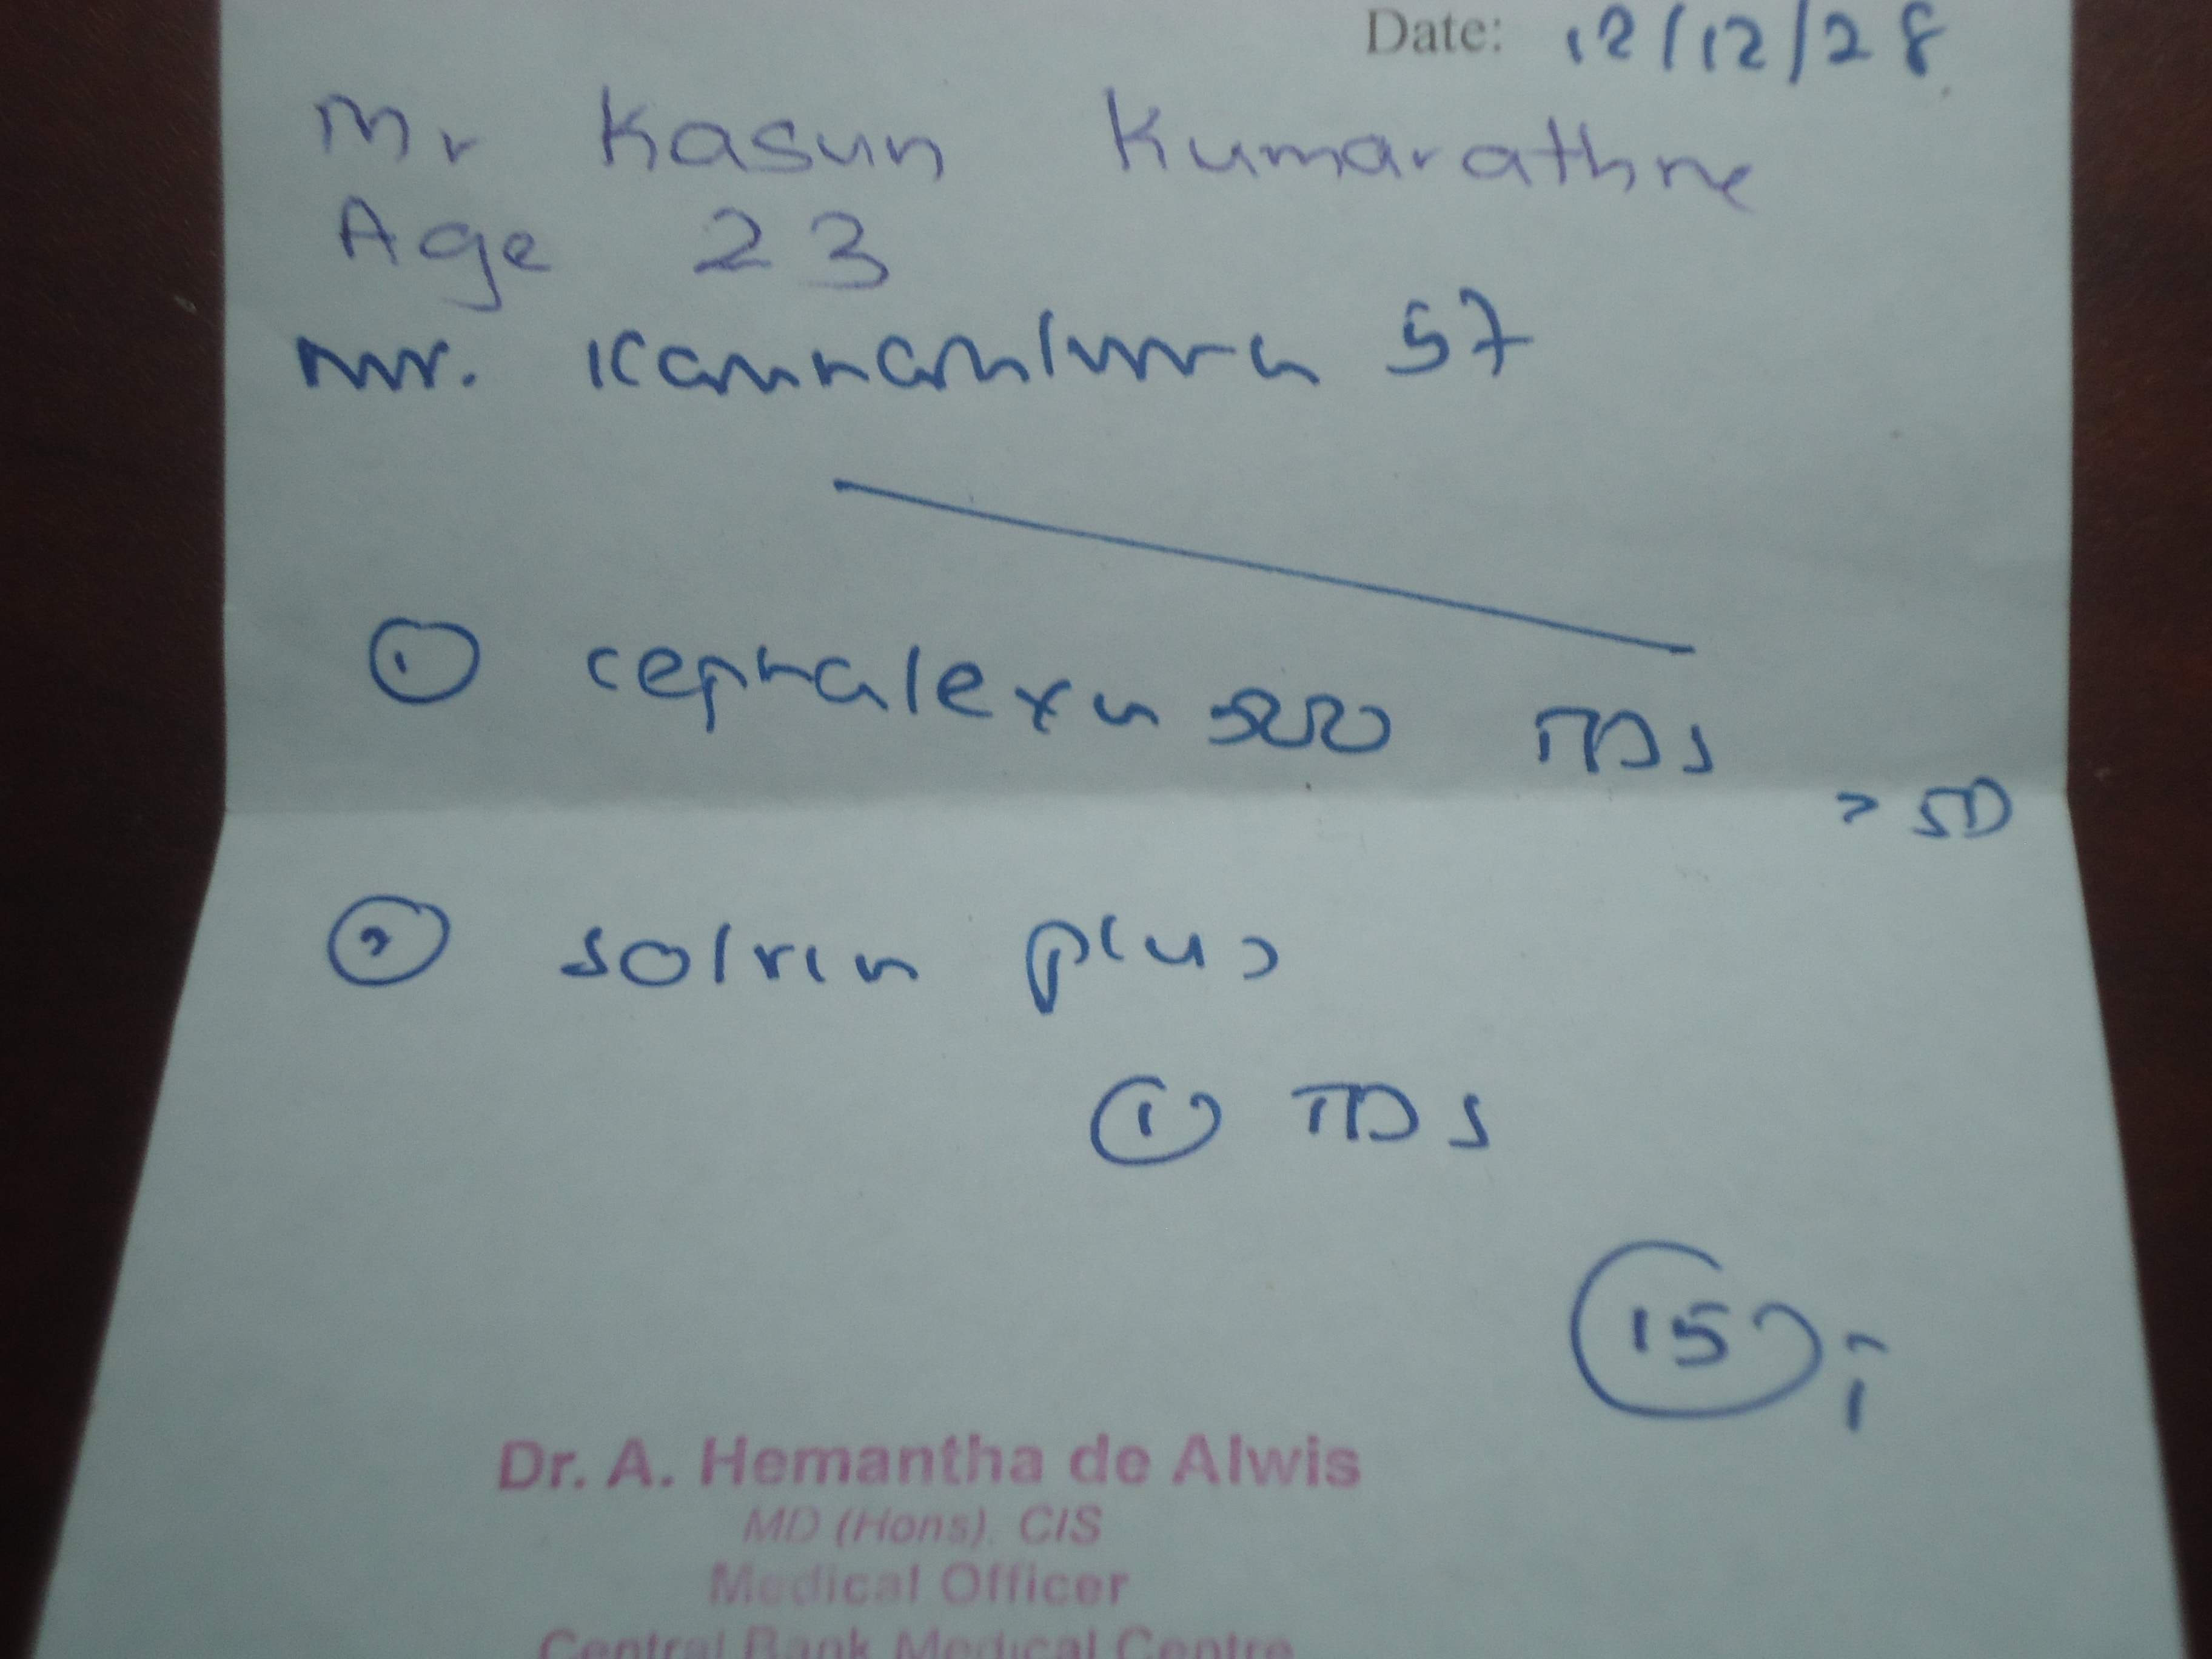 Date: 12/12/28
Mr Kasun Kumarathne
Age 23
Mr. 57
① cephalexin 500 TDS
> 5D
② solvin plus
① TDS
15
Dr. A. Hemantha de Alwis
MD (Hons). CIS
Medical Officer
Central Bank Medical Centre